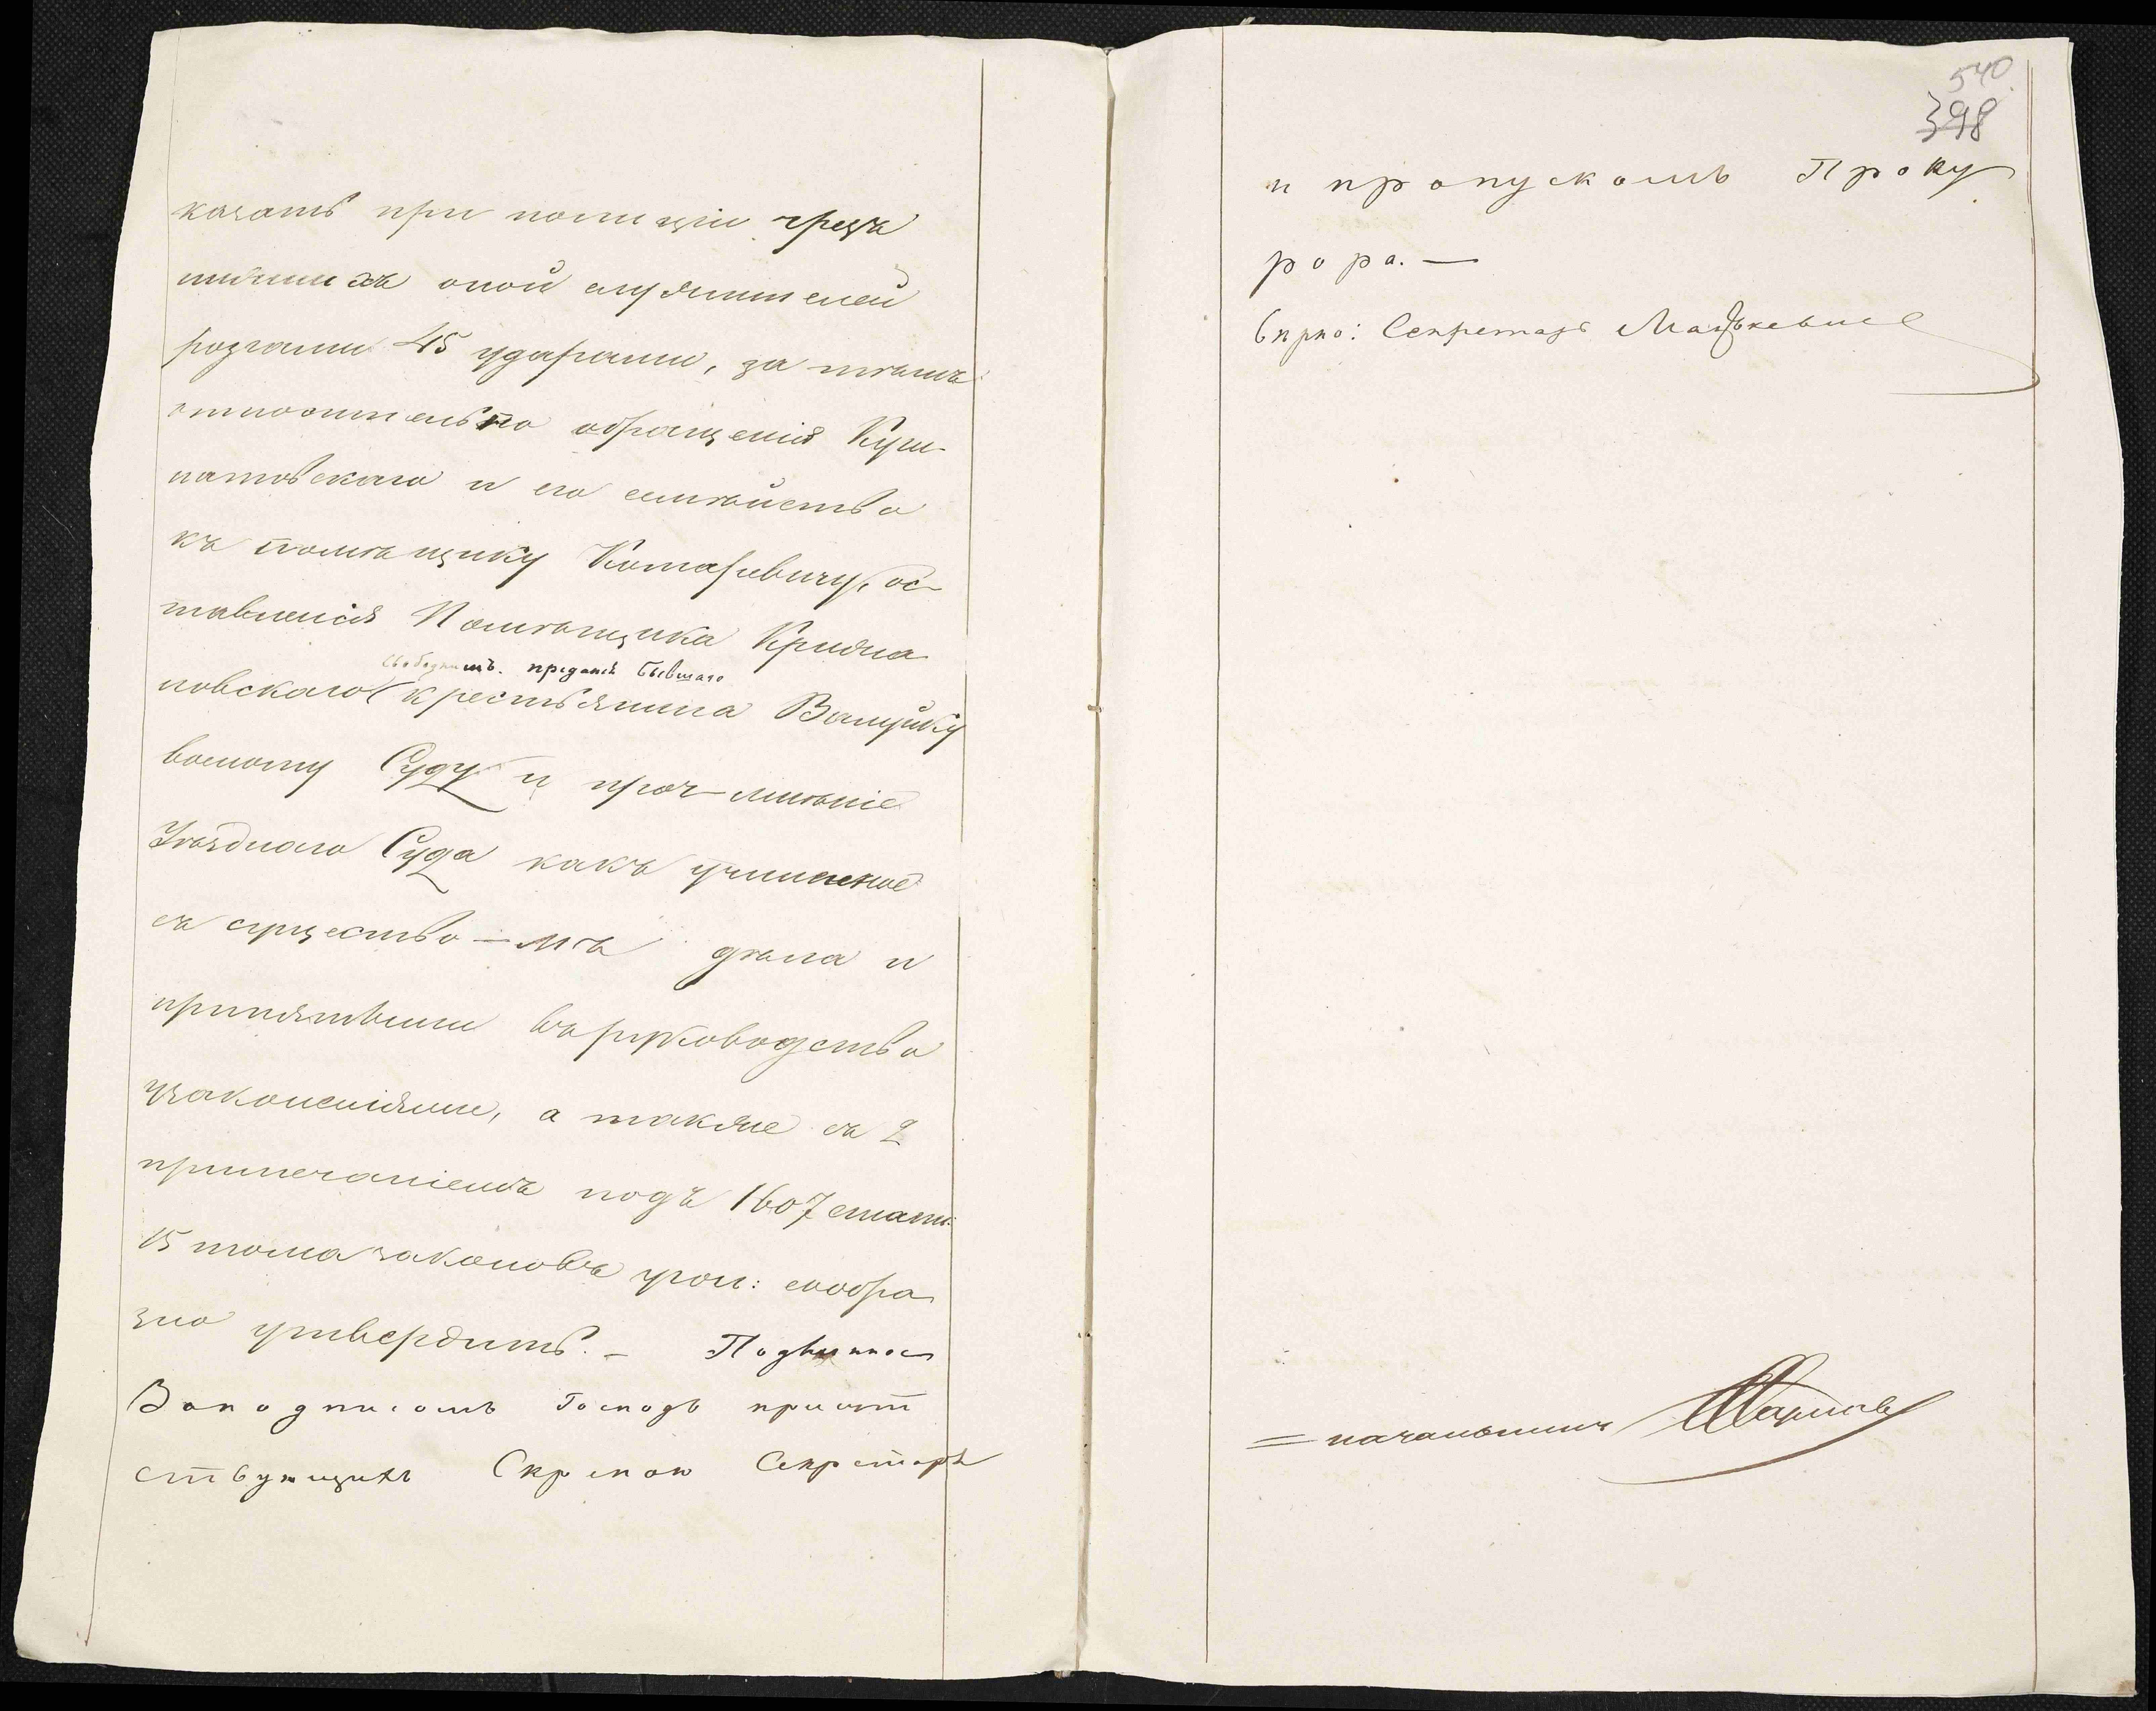 казать при полиціи чрезъ
нижнихъ оной служителей
розгами 45 ударами, за тѣмъ
относительно обращенія Кули-
натовскаго и его семѣйства
къ помѣщику Комаревичу, ос-
тавленія Помѣщика Кржижа
свободнымъ. преданія бывшаго
новскаго крестьянина
военному Суду и проч. мнѣніе
Уѣзднаго Суда какъ учиненное
съ существо-мъ дѣла и
принятыми въ руководство
узаконеніями, а также съ 2
примечаніемъ подъ 1607 стать:
15 тома законовъ угол: сообра
зно утвердить. — Подлинное
За подписомъ Господъ присут
ствующихъ Скрепою Секретаря
540
398
и пропускомъ Проку
рора. —
Вѣрно: Секретарь Мацкевичъ
= начальникъ